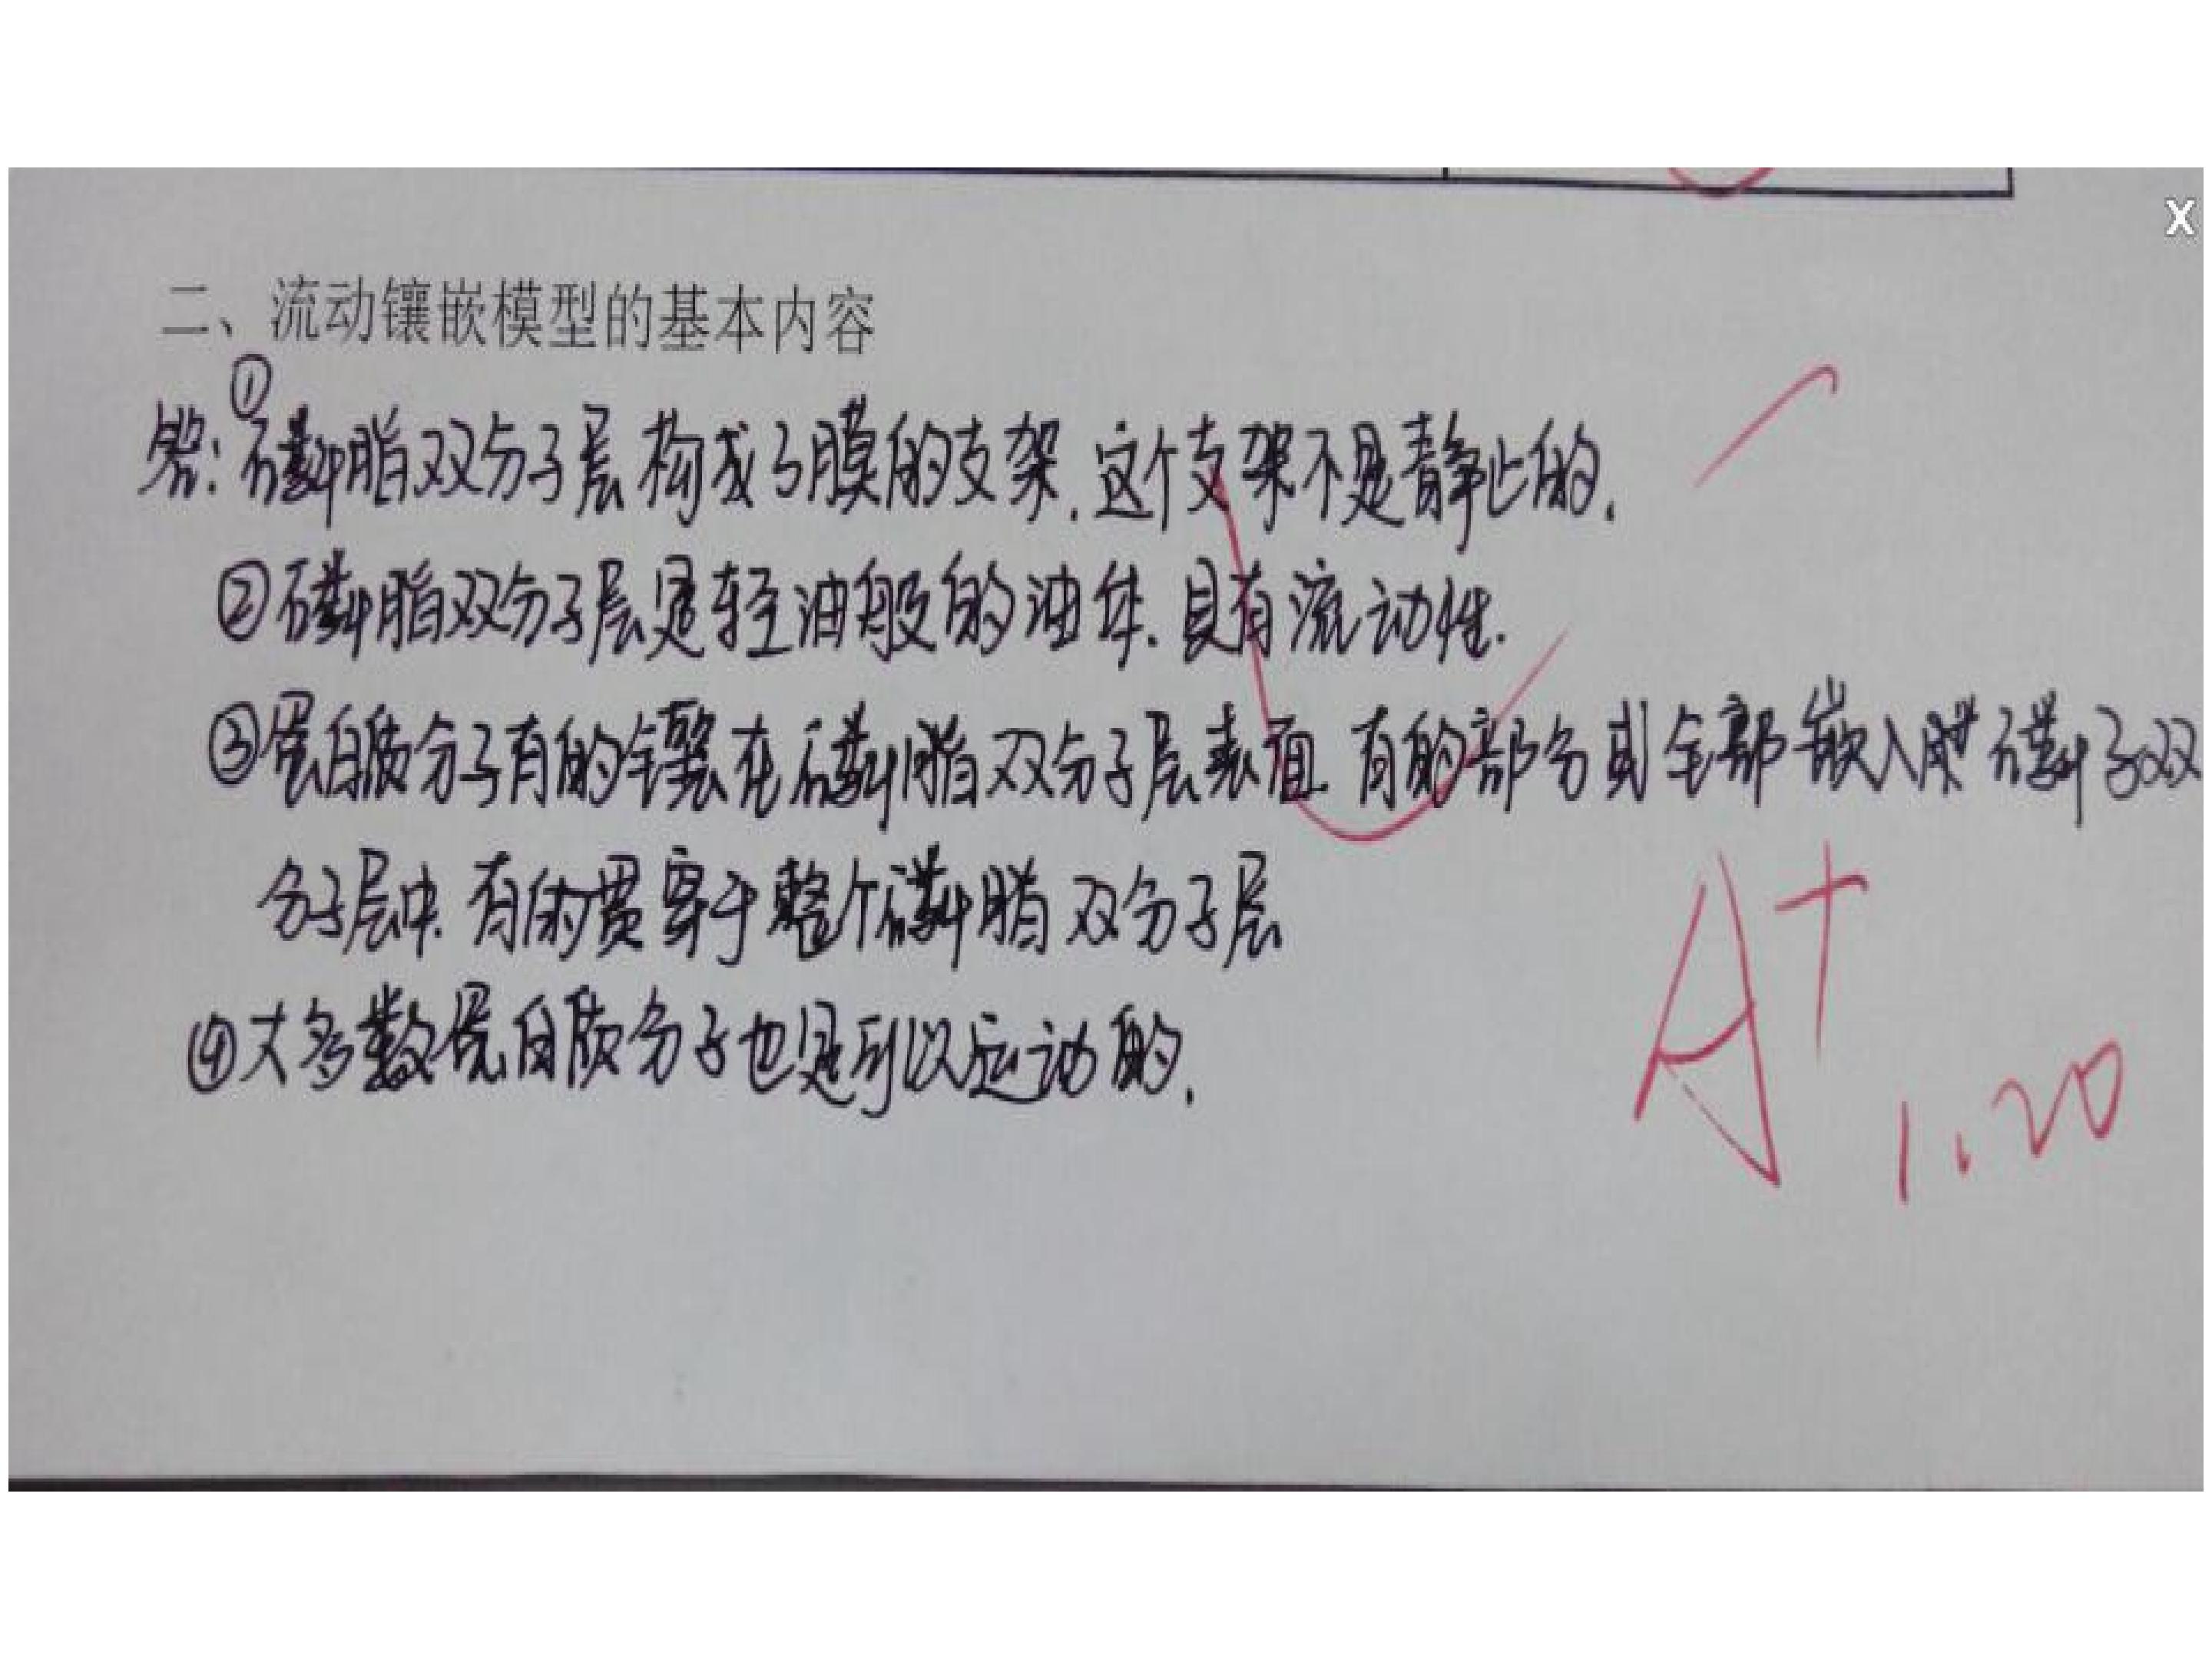 X
二、流动镶嵌模型的基本内容
①
答:磷脂双分子层构成了膜的支架.这个支架不是静止的.
②磷脂双分子层是轻油般的油体.具有流动性.
③蛋白质分子有的镶在磷脂双分子层表面 有的部分或全部嵌入 磷子双
分子层中.有的贯穿于整个磷脂双分子层
④大多数蛋白质分子也是可以运动的.
A+
1.20